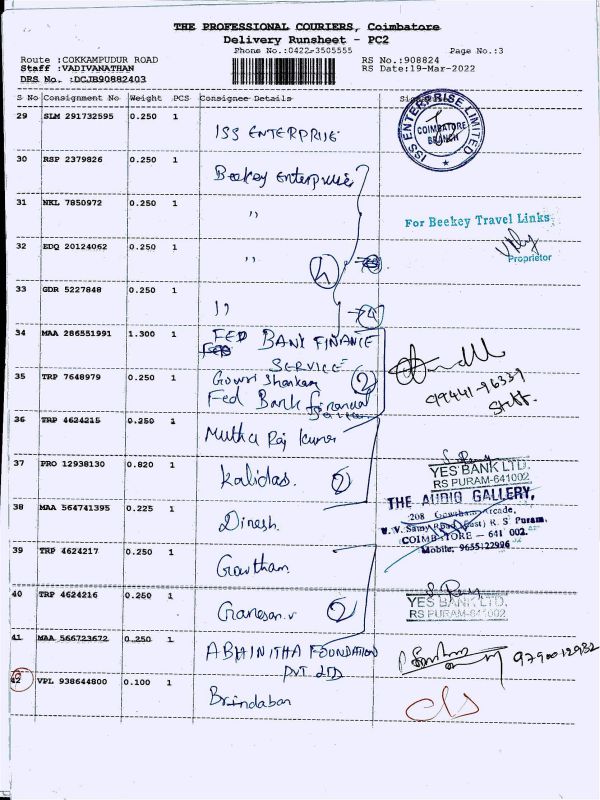 THE PROFESSIONAL COURIERS, Coimbatore
Delivery Runsheet - PC2
Phone No.:0422-3505555
Page No.:3
Route :COKKAMPUDUR ROAD
RS No.:908824
Staff :VADIVANATHAN
RS Date:19-Mar-2022
DRS No. :DCJB90882403
S No Consignment No Weight PCS Consignee Details
29 SLM 291732595 0.250 1
ISS ENTERPRISE
ISS ENTERPRISE LIMITED
COIMBATORE
BRANCH
30 RSP 2379826 0.250 1
Beekey Enterprise
31 NKL 7850972 0.250 1
"
For Beekey Travel Links
Proprietor
32 EDQ 20124062 0.250 1
"
4
33 GDR 5227848 0.250 1
"
34 MAA 286551991 1.300 1
FED BANK FINANCE
SERVICE
35 TRP 7648979 0.250 1
Gowri Shankar
2
Fed Bank financial
99441-96339
Staff.
36 TRP 4624215 0.250 1
Muthu Raj Kumar
37 PRO 12938130 0.820 1
Kalidas.
2
YES BANK LTD.
RS PURAM-641002
38 MAA 564741395 0.225 1
Dinesh
THE AUDIO GALLERY,
208 Gowtham Arcade,
V. V. Samy Road (East) R. S. Puram,
COIMBATORE - 641 002.
Mobile: 9655122996
39 TRP 4624217 0.250 1
Gowtham
40 TRP 4624216 0.250 1
Ganesan.v
2
YES BANK LTD.
RS PURAM-641002
41 MAA 566723672 0.250 1
ABHINITHA FOUNDATION
PVT LTD
9790012982
42 VPL 938644800 0.100 1
Brindaban